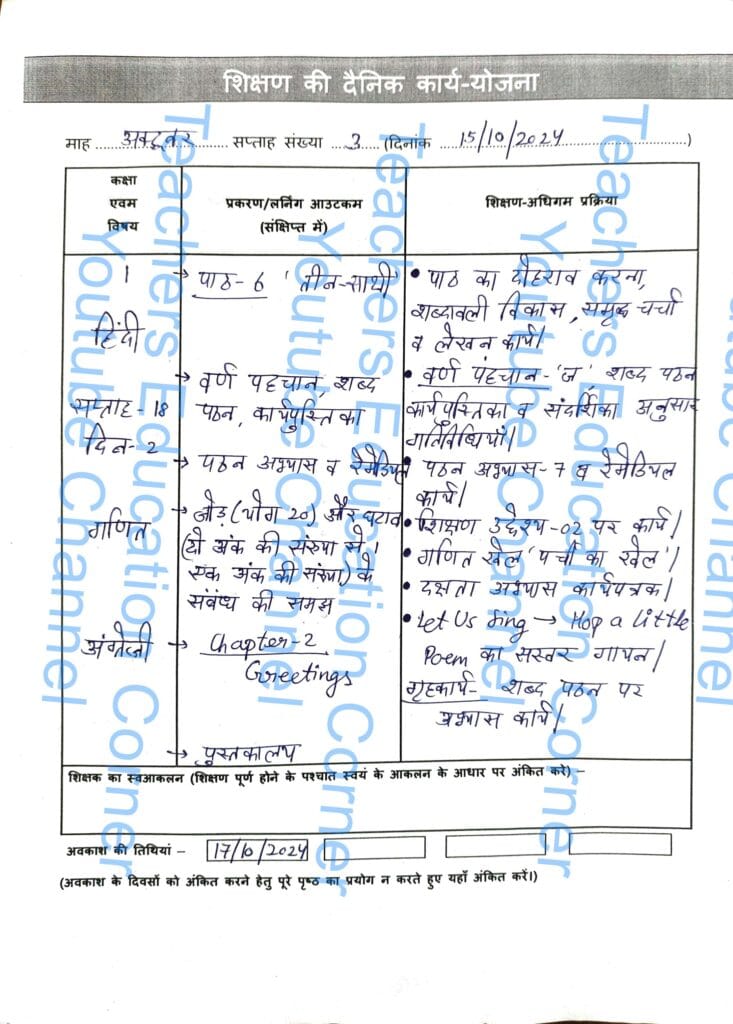 शिक्षण की दैनिक कार्य-योजना
माह अक्टूबर सप्ताह संख्या 3 (दिनांक 15/10/2024)
कक्षा
एवम
विषय
प्रकरण/लर्निंग आउटकम
(संक्षिप्त में)
शिक्षण-अधिगम प्रक्रिया
1
हिंदी
सप्ताह-18
दिन-2
गणित
अंग्रेजी
→ पाठ-6 'तीन-साथी'
→ वर्ण पहचान, शब्द
पठन, कार्यपुस्तिका
→ पठन अभ्यास व रेमेडियल
→ जोड़ (योग 20) और घटाव
(दो अंक की संख्या से
एक अंक की संख्या) के
संबंध की समझ
→ Chapter-2
Greetings
→ पुस्तकालय
• पाठ का दोहराव करना,
शब्दावली विकास, समृद्ध चर्चा
व लेखन कार्य।
• वर्ण पहचान-'ज', शब्द पठन
कार्यपुस्तिका व संदर्शिका अनुसार
गतिविधियाँ।
• पठन अभ्यास-7 व रेमेडियल
कार्य।
• शिक्षण उद्देश्य-02 पर कार्य।
• गणित खेल 'पर्ची का खेल'।
• दक्षता अभ्यास कार्यपत्रक।
• Let Us Sing → Hop a little
Poem का सस्वर गायन।
गृहकार्य- शब्द पठन पर
अभ्यास कार्य।
शिक्षक का स्वआकलन (शिक्षण पूर्ण होने के पश्चात स्वयं के आकलन के आधार पर अंकित करे) –
अवकाश की तिथियां – 17/10/2024
(अवकाश के दिवसों को अंकित करने हेतु पूरे पृष्ठ का प्रयोग न करते हुए यहाँ अंकित करें।)
Teachers Education Corner
Youtube Channel
Teachers Education Corner
Youtube Channel
Teachers Education Corner
Youtube Channel
Channel